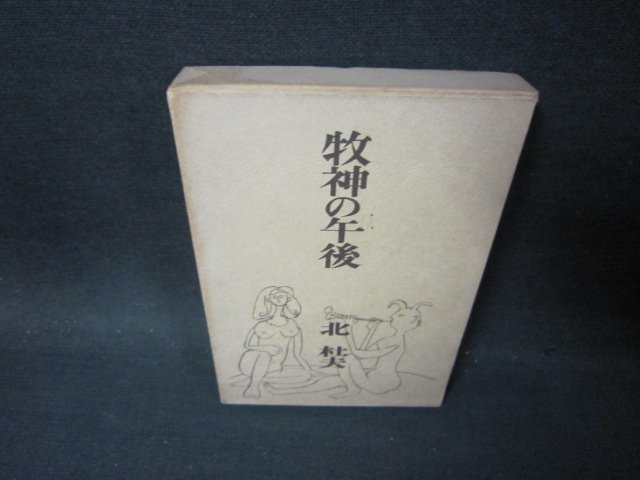 牧神の午後
北杜夫